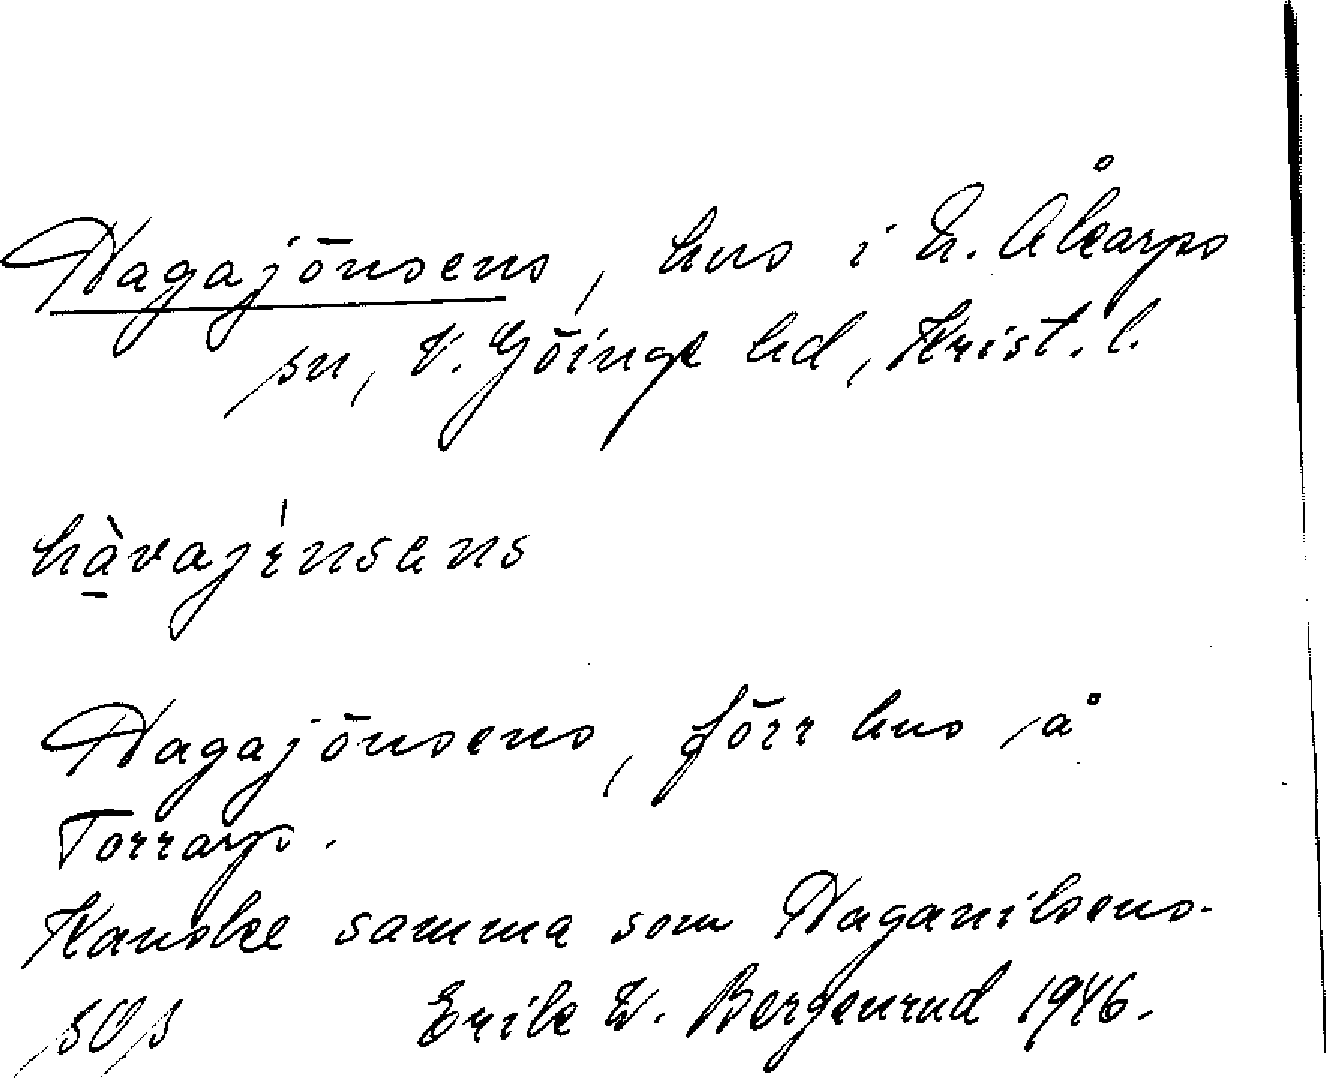 Hagajönsens, hus i N. Åkarps
sn, V. Göinge hd, Krist. l.
hàvajönsens
Hagajönsens, förr hus å
Torrarp.
Kanske samma som Haganilsens.
Erik W. Bergenrud 1946.